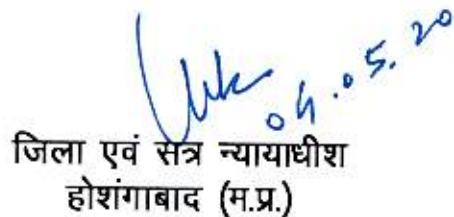 04.05.20
जिला एवं सत्र न्यायाधीश
होशंगाबाद (म.प्र.)